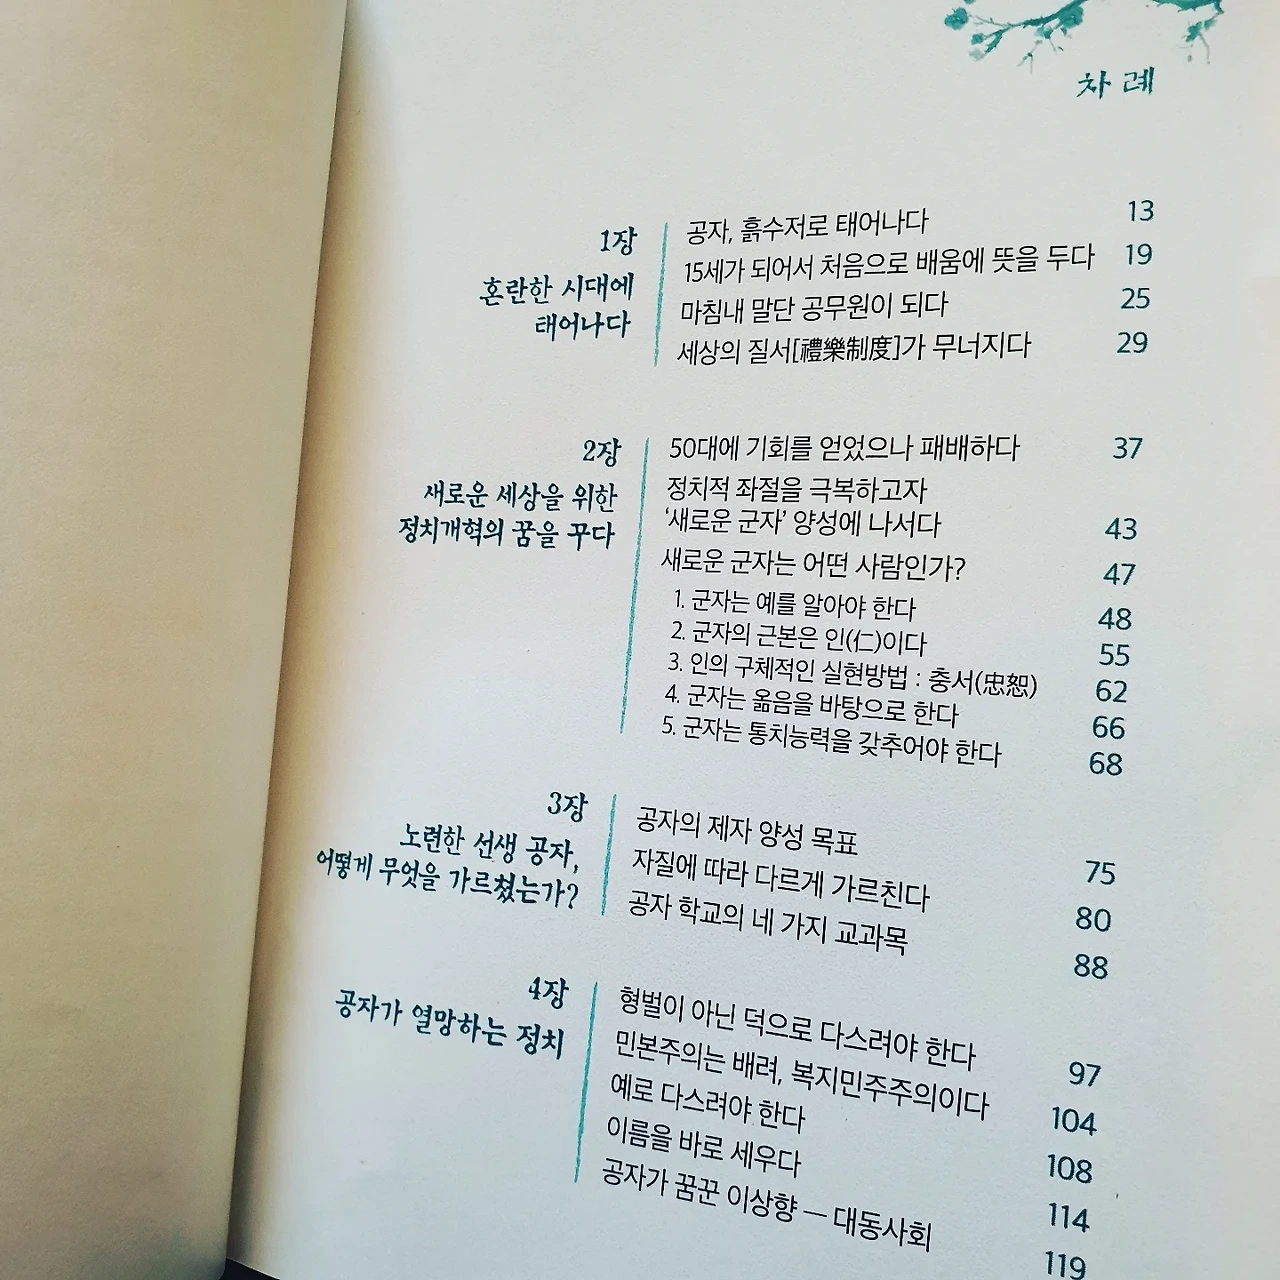 차례
1장
혼란한 시대에
태어나다
공자, 흙수저로 태어나다 13
15세가 되어서 처음으로 배움에 뜻을 두다 19
마침내 말단 공무원이 되다 25
세상의 질서[禮樂制度]가 무너지다 29
2장
새로운 세상을 위한
정치개혁의 꿈을 꾸다
50대에 기회를 얻었으나 패배하다 37
정치적 좌절을 극복하고자
‘새로운 군자’ 양성에 나서다 43
새로운 군자는 어떤 사람인가? 47
1. 군자는 예를 알아야 한다 48
2. 군자의 근본은 인(仁)이다 55
3. 인의 구체적인 실현방법 : 충서(忠恕) 62
4. 군자는 옳음을 바탕으로 한다 66
5. 군자는 통치능력을 갖추어야 한다 68
3장
노련한 선생 공자,
어떻게 무엇을 가르쳤는가?
공자의 제자 양성 목표 75
자질에 따라 다르게 가르친다 80
공자 학교의 네 가지 교과목 88
4장
공자가 열망하는 정치
형벌이 아닌 덕으로 다스려야 한다 97
민본주의는 배려, 복지민주주의이다 104
예로 다스려야 한다 108
이름을 바로 세우다 114
공자가 꿈꾼 이상향 — 대동사회 119